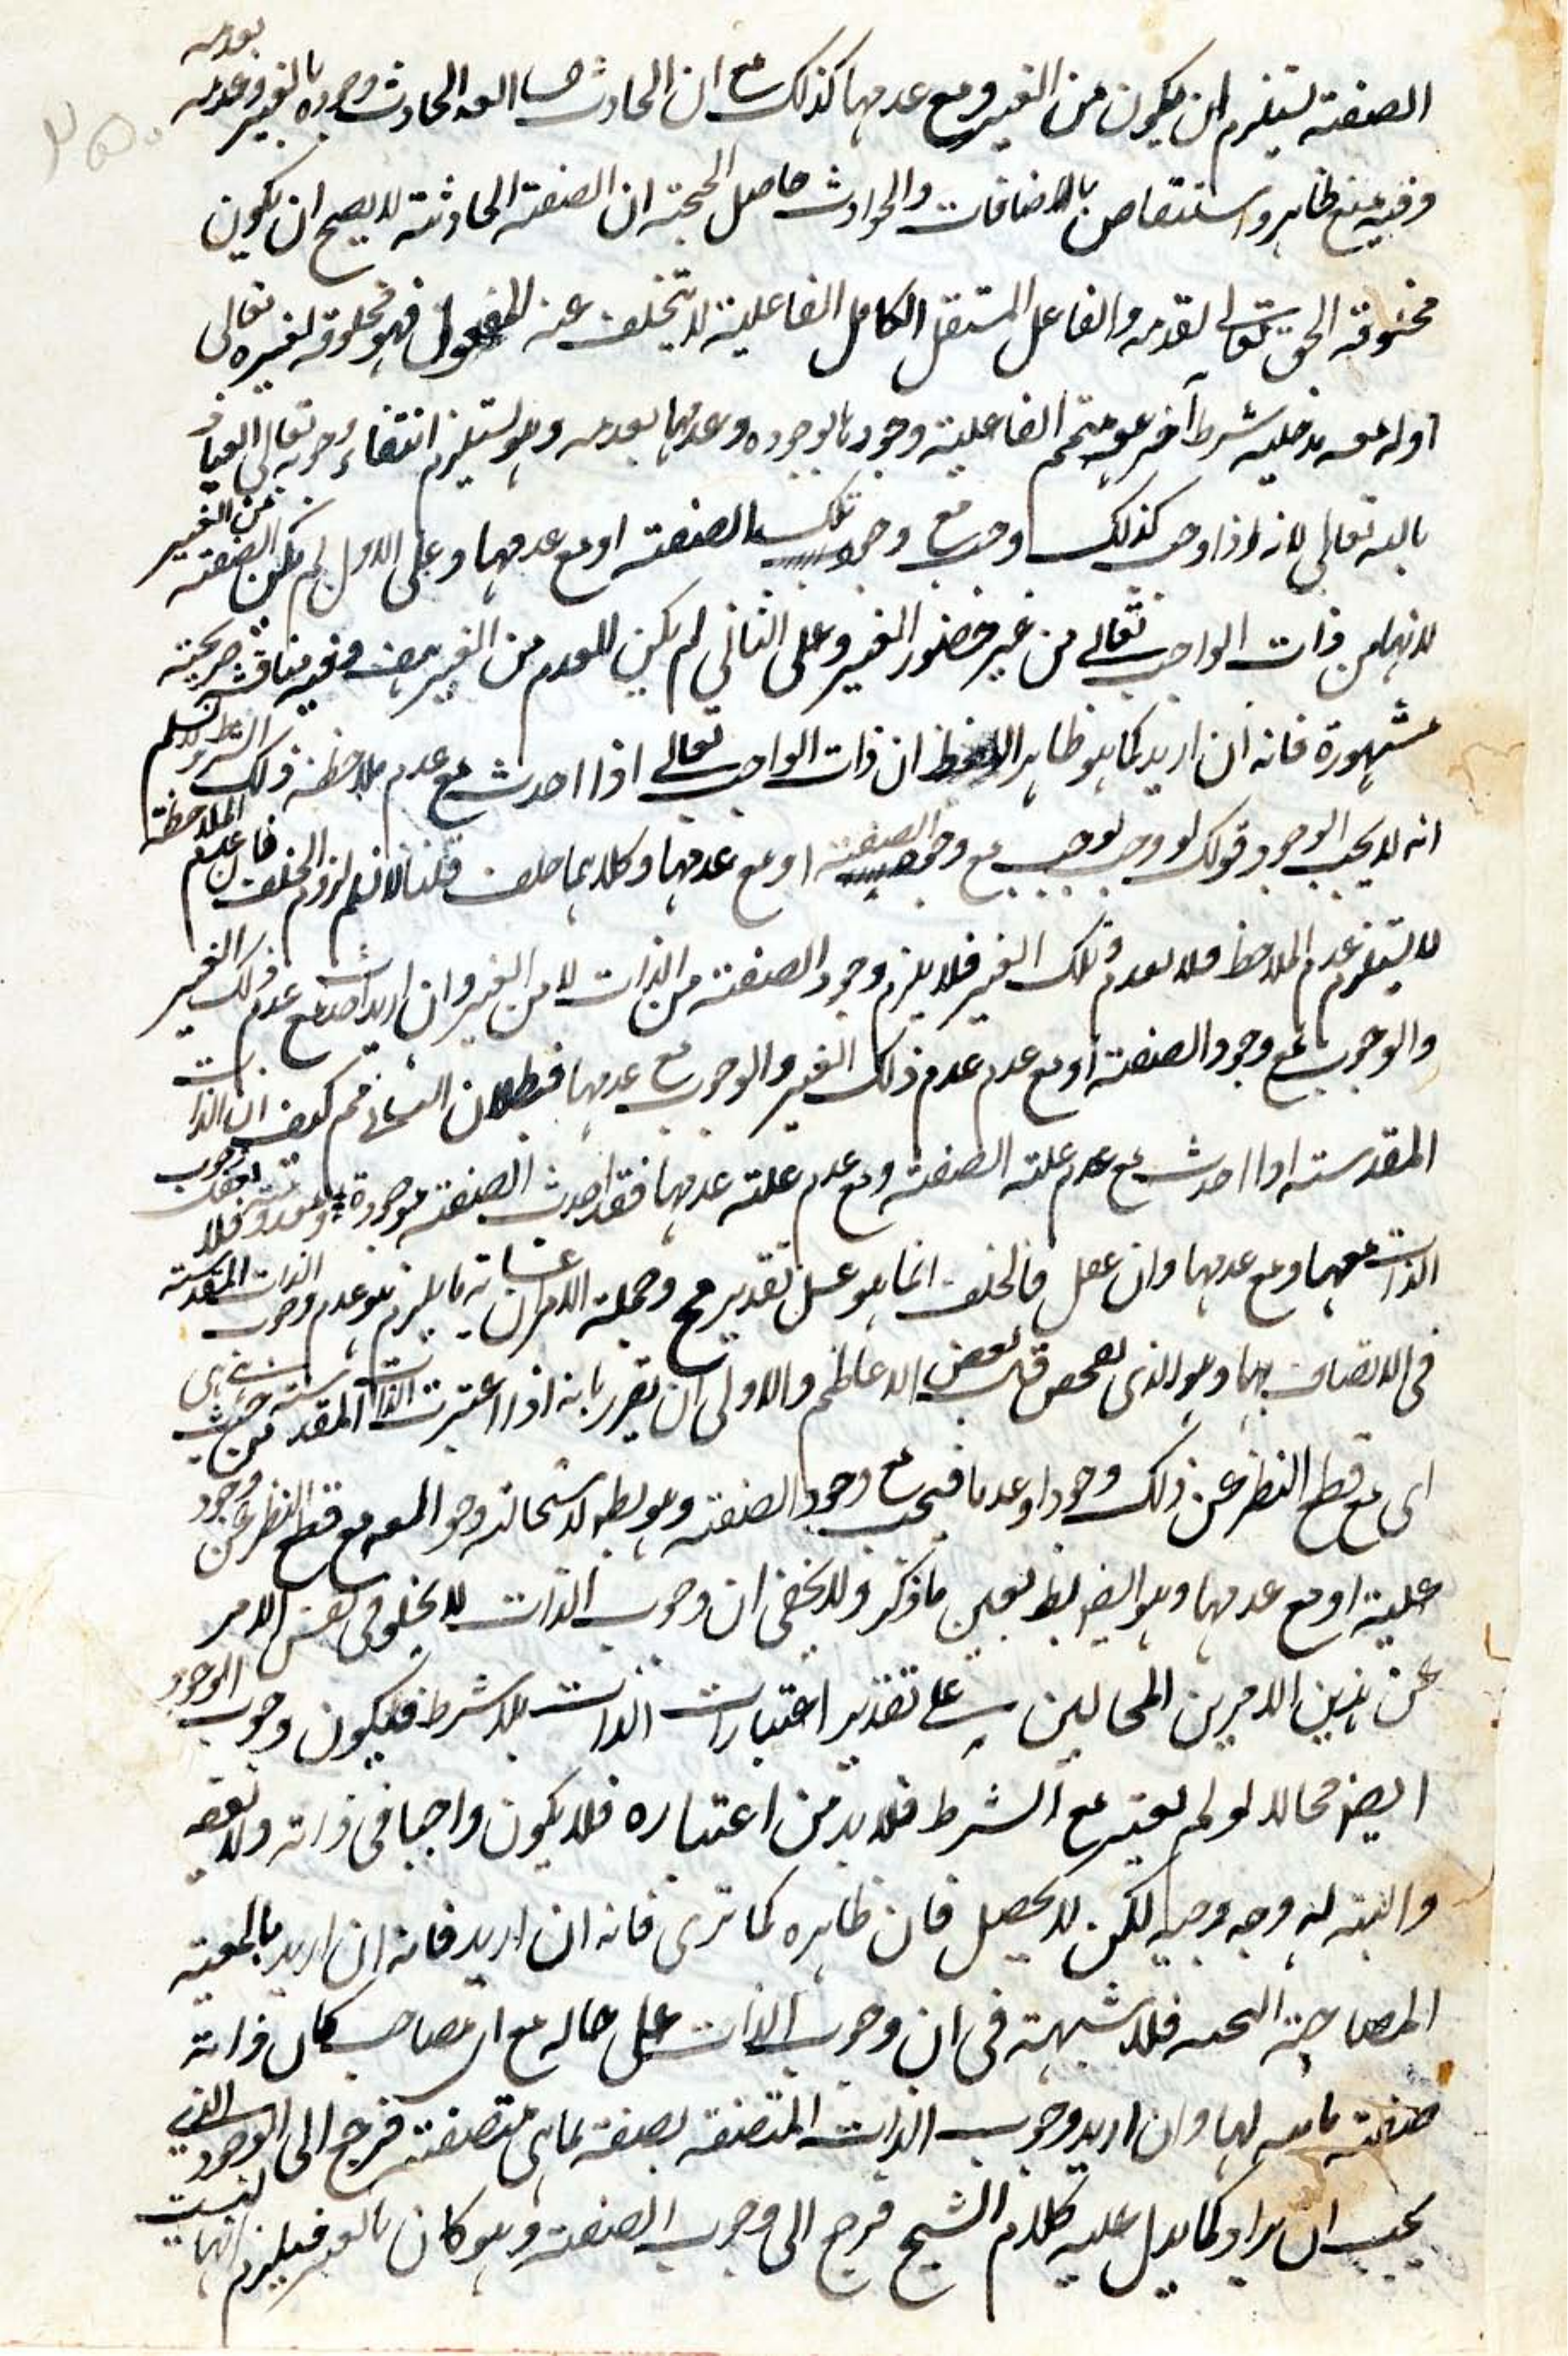 الصفة يستلزم ان يكون من الغير ومع عدمها كذلك مع ان الحادث وجوده بالغير وعدمه بعدمه
وفيه منع ظاهر واستنقاض بالاضافات والحوادث حاصل الحجة ان الصفة الحادثة لا يصح ان يكون
مخلوقة الحق تعالى لقدمه والفاعل المستقل الكامل الفاعلية لا يتخلف عنه المفعول فهو مخلوقة لغيره تعالى
او له مدخلية شرط آخر هو متمم الفاعلية وجودها بوجوده وعدمها بعدمه وهو يستلزم انتفاء وجوبه تعالى العياذ
بالله تعالى لانه اذا وجب كذلك وجب مع وجود تلك الصفة او مع عدمها وعلى الاول لم يكن الصفة من الغير
لانها من ذات الواجب تعالى من غير حضور الغير وعلى الثاني لم يكن العدم من الغير هف وفيه مناقشة صريحة
مشهورة فانه ان اريد كما هو ظاهر اللفظ ان ذات الواجب تعالى اذا اخذت مع عدم ملاحظة ذلك الشرط لا نسلم
انه لا يجب الوجود قولك لو وجب لوجب مع وجود الصفة او مع عدمها وكلاهما خلف قلنا لا نسلم لزوم الخلف فان عدم الملاحظة
لا يستلزم عدم الملاحظ فلا يعدم ذلك الغير فلا يلزم وجود الصفة من الذات لا من الغير وان اريد اخذت مع عدم ذلك الغير
والوجوب مع وجود الصفة او مع عدم عدم ذلك الغير والوجوب مع عدمها فبطلان التالي مم كيف ان الذات
المقدسة اذا اخذت مع عدم علة الصفة ومع عدم علة عدمها فقد اخذت الصفة موجودة ومعدومة فلا يعقل وجوب
الذات معها ومع عدمها وان عقل فالخلف انما هو على تقدير مح وجملة الامران غاية ما يلزم هو عدم وجوب الذات المقدسة
في الاتصاف بها وهو الذي بعض الاعاظم والاولى ان يقرر بانه اذا اعتبرت الذات المقدسة من حيث هي هي
اى مع قطع النظر عن ذلك وجودا وعدما فيجب مع وجود الصفة وهو بط لاستحالة وجود المعه مع قطع النظر عن وجود
علية او مع عدمها وهو ايضا بط بعين ما ذكر ولا يخفى ان وجوب الذات لا يخلو في نفس الامر
عن هذين الامرين المحالين على تقدير اعتبارات الذات بلا شرط فيكون وجوب الوجود
ايضا محالا لو لم يعتبر مع الشرط فلا بد من اعتباره فلا يكون واجبا في ذاته
والبتة له وجه وجيه لكن لا يحصل فان ظاهره كما ترى فانه ان اريد فانه ان اريد بالمعية
المصاحبة البحته فلا شبهة في ان وجوب الذات على حاله مع ان مصاحب كان ذاته
صفته لها وان اريد وجوب الذات المتصفة بصفة بما هي متصفة فرجع الى الوجود الذي
يجب ان يراد كما يدل عليه كلام الشيخ فرجع الى وجوب الصفة وهو كان بالغير فيلزم انها ليست